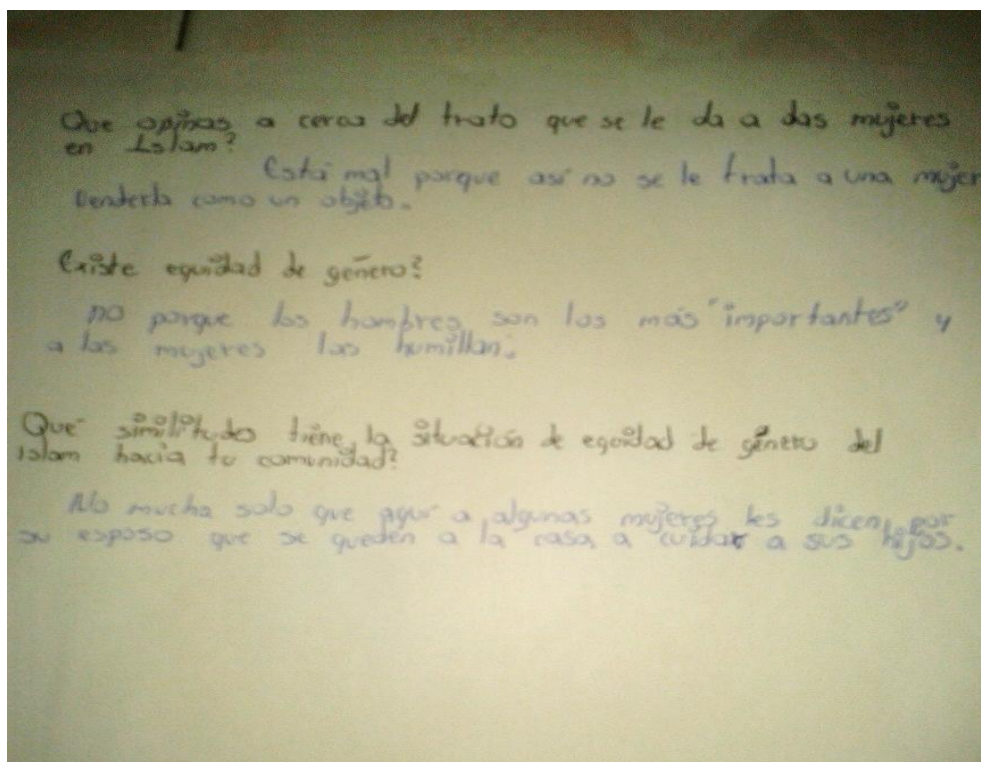 Que opinas a cerca del trato que se le da a das mujeres
en Islam?
Está mal porque así no se le trata a una mujer
Venderla como un objeto.
Existe equidad de género?
no porque los hombres son los más "importantes" y
a las mujeres las humillan.
Que similitudes tiene la situación de equidad de género del
islam hacia tu comunidad?
No mucha solo que aquí a algunas mujeres les dicen por
su esposo que se queden a la casa a cuidar a sus hijos.